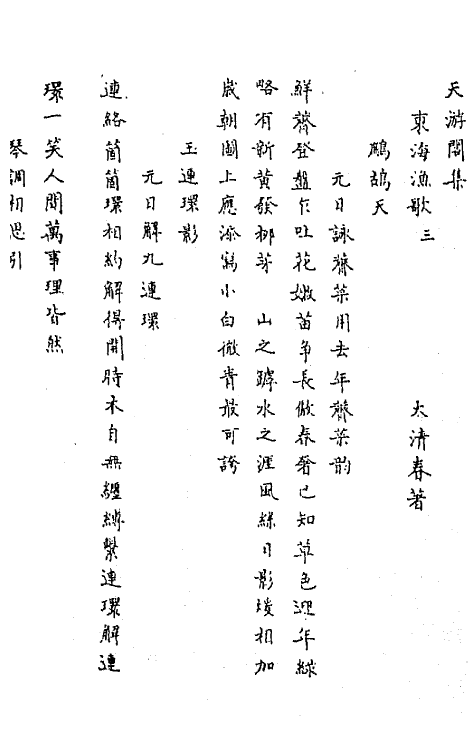 天游閣集
東海漁歌 三　太清春著
鷓鴣天
元日詠薺菜用去年薺菜韵
鮮薺登盤乍吐花嫩苗争長傲春奢已知草色迎年綠
略有新黄發柳芽　山之罅水之涯風絲日影㷌相加
歲朝圖上應添寫小白微青最可誇
玉連環影
元日解九連環
連絡箇箇環相約解得開時木自無纏縛繫連環解連
環一笑人間萬事理皆然
琴調相思引